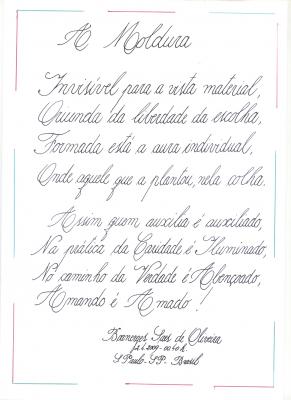 A Moldura
Invisível para a vista material,
Oriunda da liberdade da escolha,
Formada está a aura individual,
Onde aquele que a plantou, nela colha.
Assim quem auxilia é auxiliado,
Na prática da Caridade é Iluminado,
No caminho da Verdade é Abençoado,
Amando é Amado!
Boanerges Saes de Oliveira
S Paulo - SP - Brasil